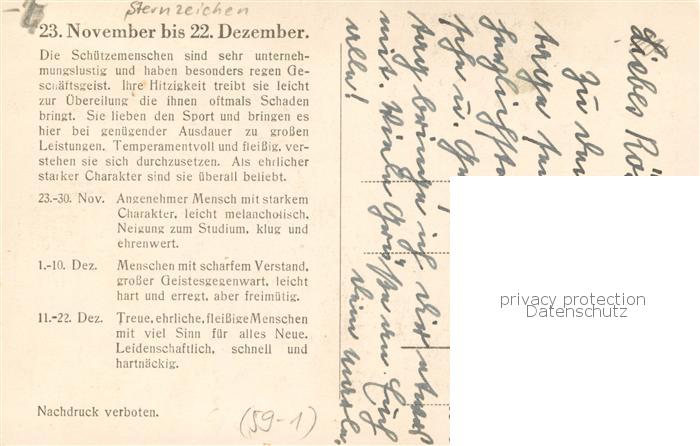 Sternzeichen
23. November bis 22. Dezember.
Die Schützemenschen sind sehr unterneh-
mungslustig und haben besonders regen Ge-
schäftsgeist. Ihre Hitzigkeit treibt sie leicht
zur Übereilung die ihnen oftmals Schaden
bringt. Sie lieben den Sport und bringen es
hier bei genügender Ausdauer zu großen
Leistungen. Temperamentvoll und fleißig, ver-
stehen sie sich durchzusetzen. Als ehrlicher
starker Charakter sind sie überall beliebt.
23.-30. Nov. Angenehmer Mensch mit starkem
Charakter, leicht melancholisch,
Neigung zum Studium, klug und
ehrenwert.
1.-10. Dez. Menschen mit scharfem Verstand,
großer Geistesgegenwart, leicht
hart und erregt, aber freimütig.
11.-22. Dez. Treue, ehrliche, fleißige Menschen
mit viel Sinn für alles Neue.
Leidenschaftlich, schnell und
hartnäckig.
Nachdruck verboten.
(59-1)
Liebes
Zu
tag bringe ich Dir etwas
mit. Viele Grüße an Euch
alle!
privacy protection
Datenschutz